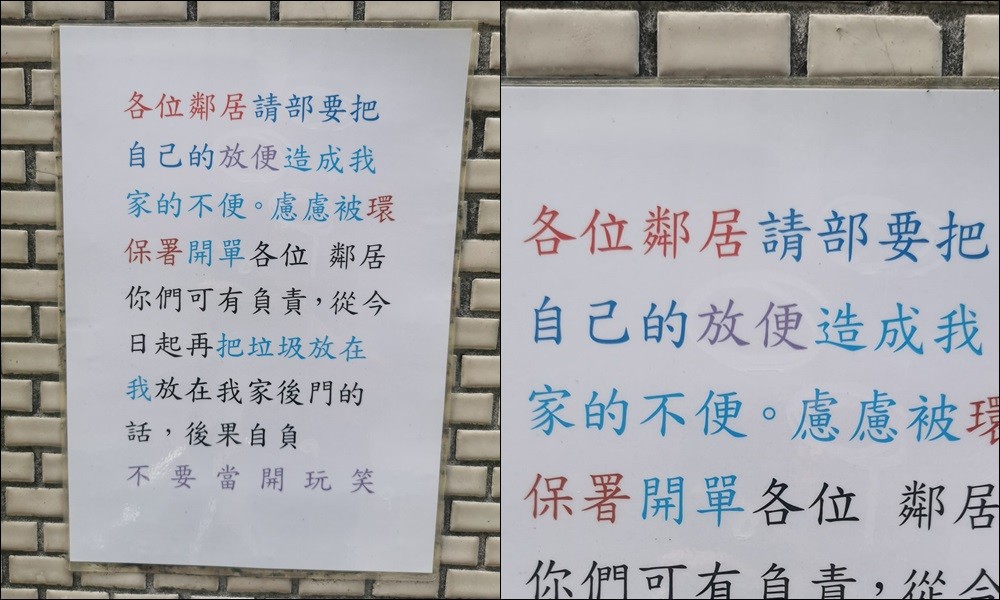 各位鄰居請部要把
自己的放便造成我
家的不便。慮慮被環
保署開單各位 鄰居
你們可有負責，從今
日起再把垃圾放在
我放在我家後門的
話，後果自負
不要當開玩笑
各位鄰居請部要把
自己的放便造成我
家的不便。慮慮被環
保署開單各位 鄰居
你們可有負責，從今